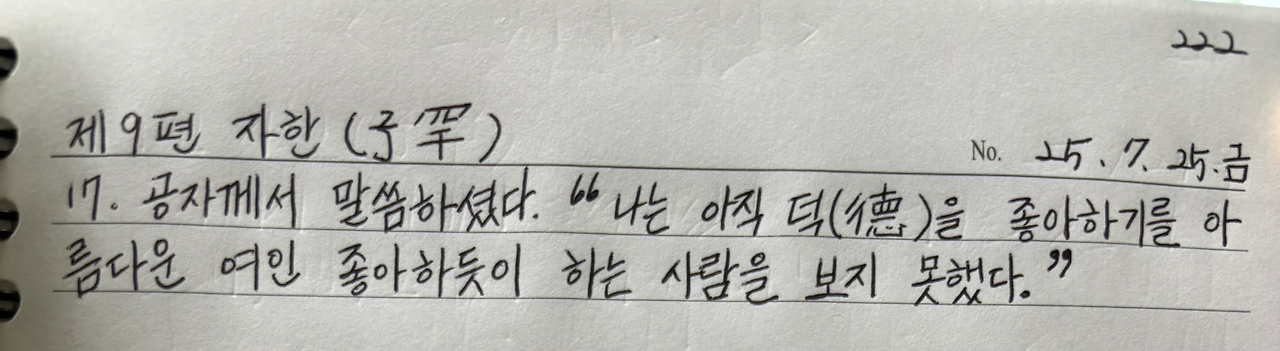 222
제9편 자한(子罕)
No. 25. 7. 25. 금
17. 공자께서 말씀하셨다. “나는 아직 덕(德)을 좋아하기를 아
름다운 여인 좋아하듯이 하는 사람을 보지 못했다.”